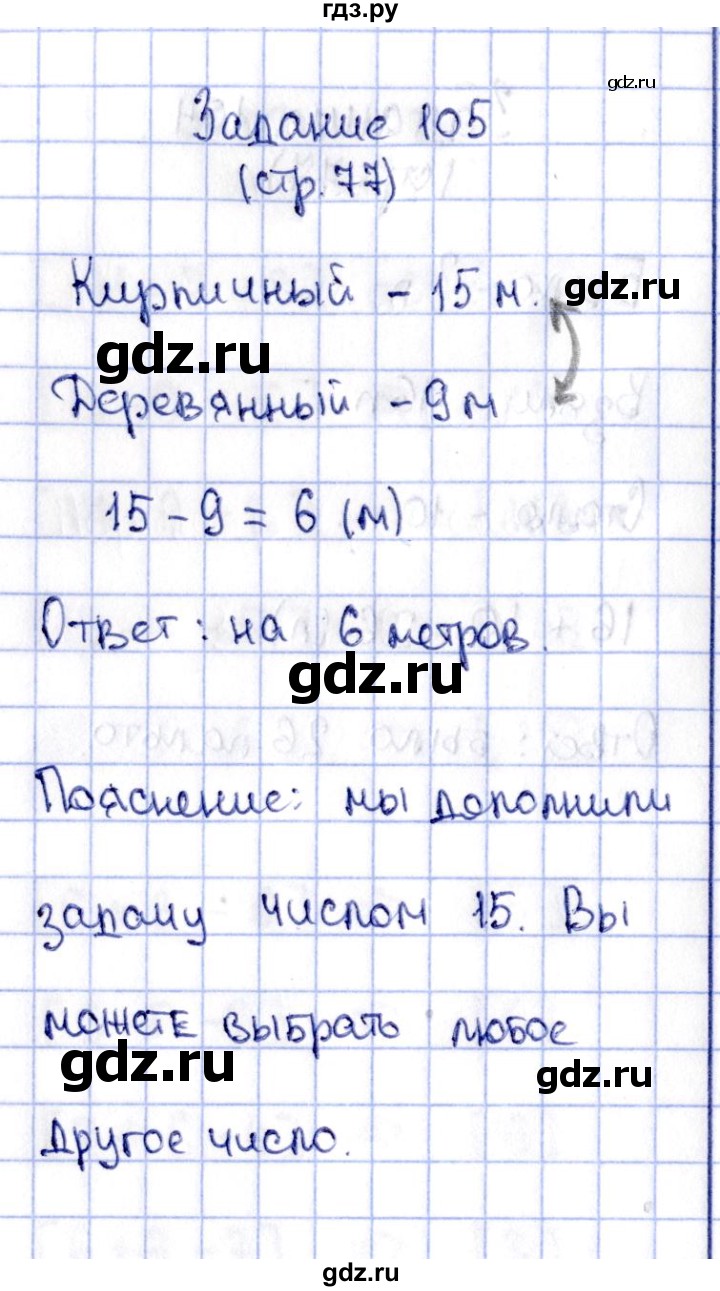 гдз.ру
gdz.ru
Задание 105
(стр. 77)
Кирпичный - 15 м.
gdz.ru
gdz.ru
Деревянный - 9 м
15 - 9 = 6 (м)
Ответ: на 6 метров.
gdz.ru
Пояснение: мы дополнили
задачу числом 15. Вы
можете выбрать любое
gdz.ru
gdz.ru
другое число.
gdz.ru